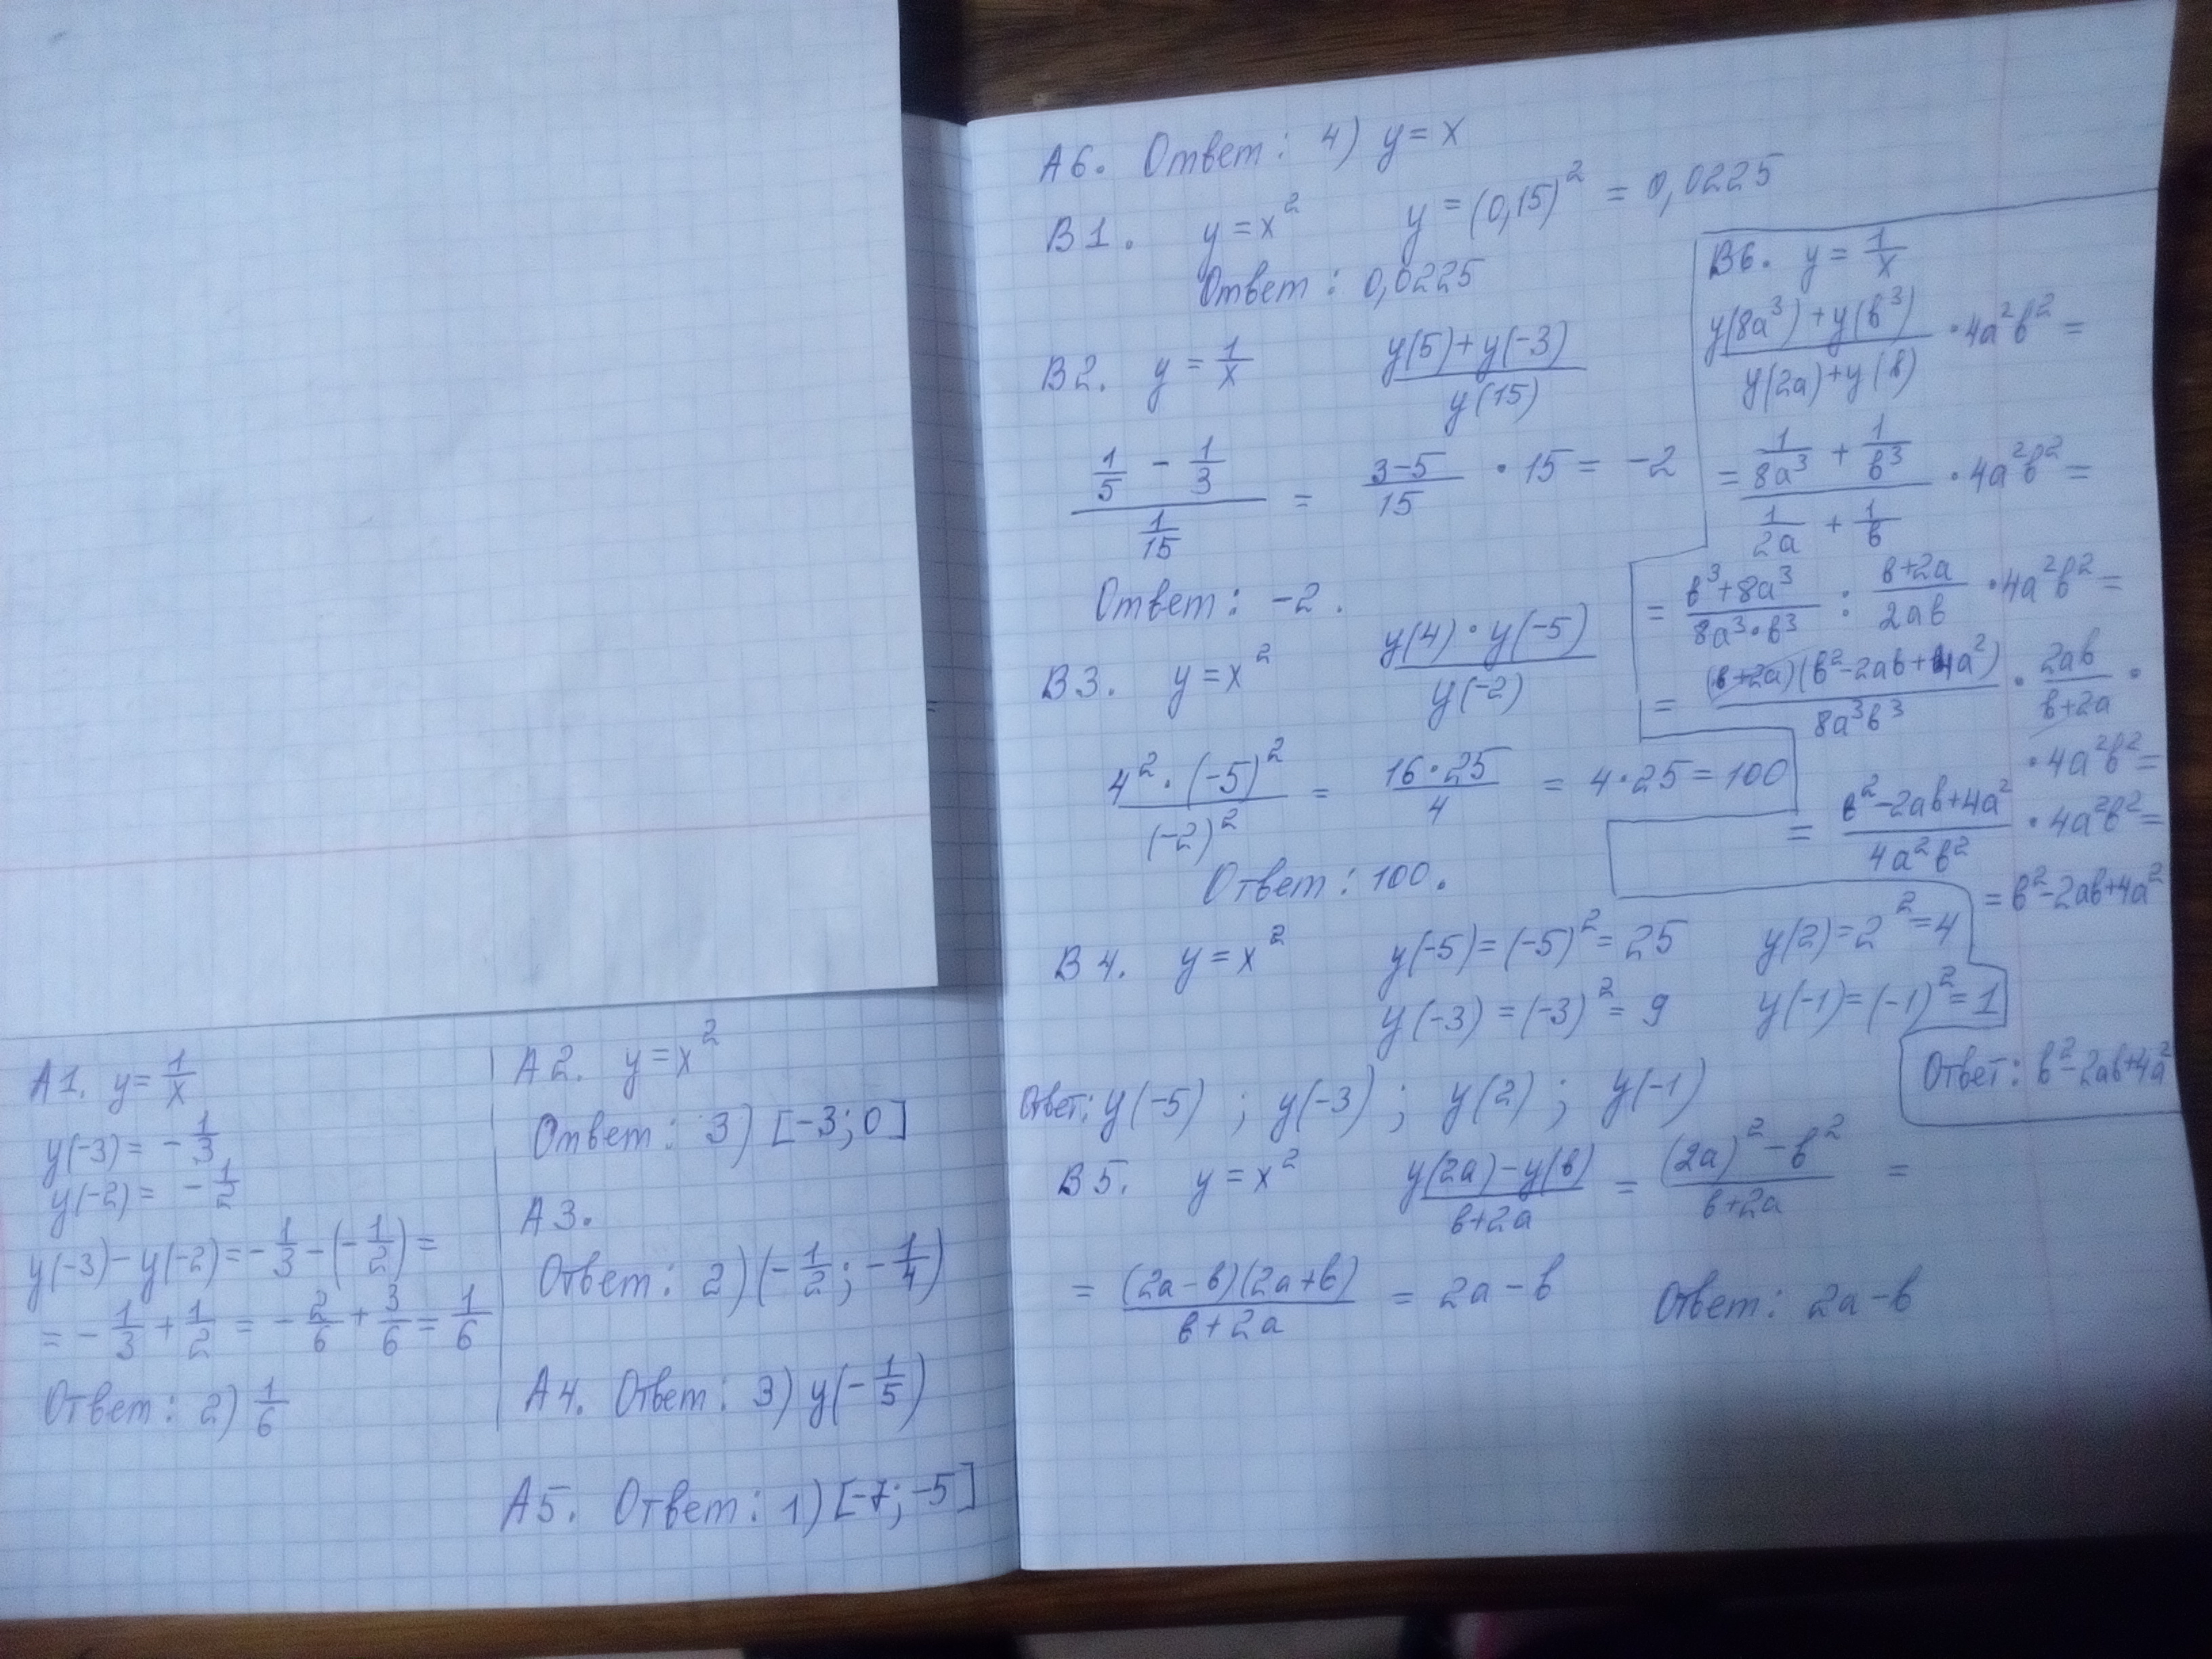 А1. y = 1/x
y(-3) = -1/3
y(-2) = -1/2
y(-3) - y(-2) = -1/3 - (-1/2) =
= -1/3 + 1/2 = -2/6 + 3/6 = 1/6
Ответ: 2) 1/6
А2. y = x²
Ответ: 3) [-3; 0]
А3.
Ответ: 2) (-1/2; -1/4)
А4. Ответ: 3) y(-1/5)
А5. Ответ: 1) [-7; -5]
А6. Ответ: 4) y = x
В1. y = x² y = (0,15)² = 0,0225
Ответ: 0,0225
В2. y = 1/x (y(5) + y(-3))/y(15)
(1/5 - 1/3)/(1/15) = (3-5)/15 · 15 = -2
Ответ: -2.
В3. y = x² (y(4) · y(-5))/y(-2)
(4² · (-5)²)/(-2)² = (16 · 25)/4 = 4 · 25 = 100
Ответ: 100.
В4. y = x² y(-5) = (-5)² = 25 y(2) = 2² = 4
y(-3) = (-3)² = 9 y(-1) = (-1)² = 1
Ответ: y(-5) ; y(-3) ; y(2) ; y(-1)
В5. y = x² (y(2a) - y(в))/(в+2a) = ((2a)² - в²)/(в+2a) =
= ((2a-в)(2a+в))/(в+2a) = 2a - в Ответ: 2a - в
В6. y = 1/x
(y(8a³) + y(в³))/(y(2a) + y(в)) · 4a²в² =
= (1/8a³ + 1/в³)/(1/2a + 1/в) · 4a²в² =
= (в³+8a³)/(8a³·в³) : (в+2a)/(2aв) · 4a²в² =
= ((в+2a)(в²-2aв+4a²))/(8a³в³) · 2aв/(в+2a) ·
· 4a²в² =
= (в²-2aв+4a²)/(4a²в²) · 4a²в² =
= в²-2aв+4a²
Ответ: в²-2aв+4a²